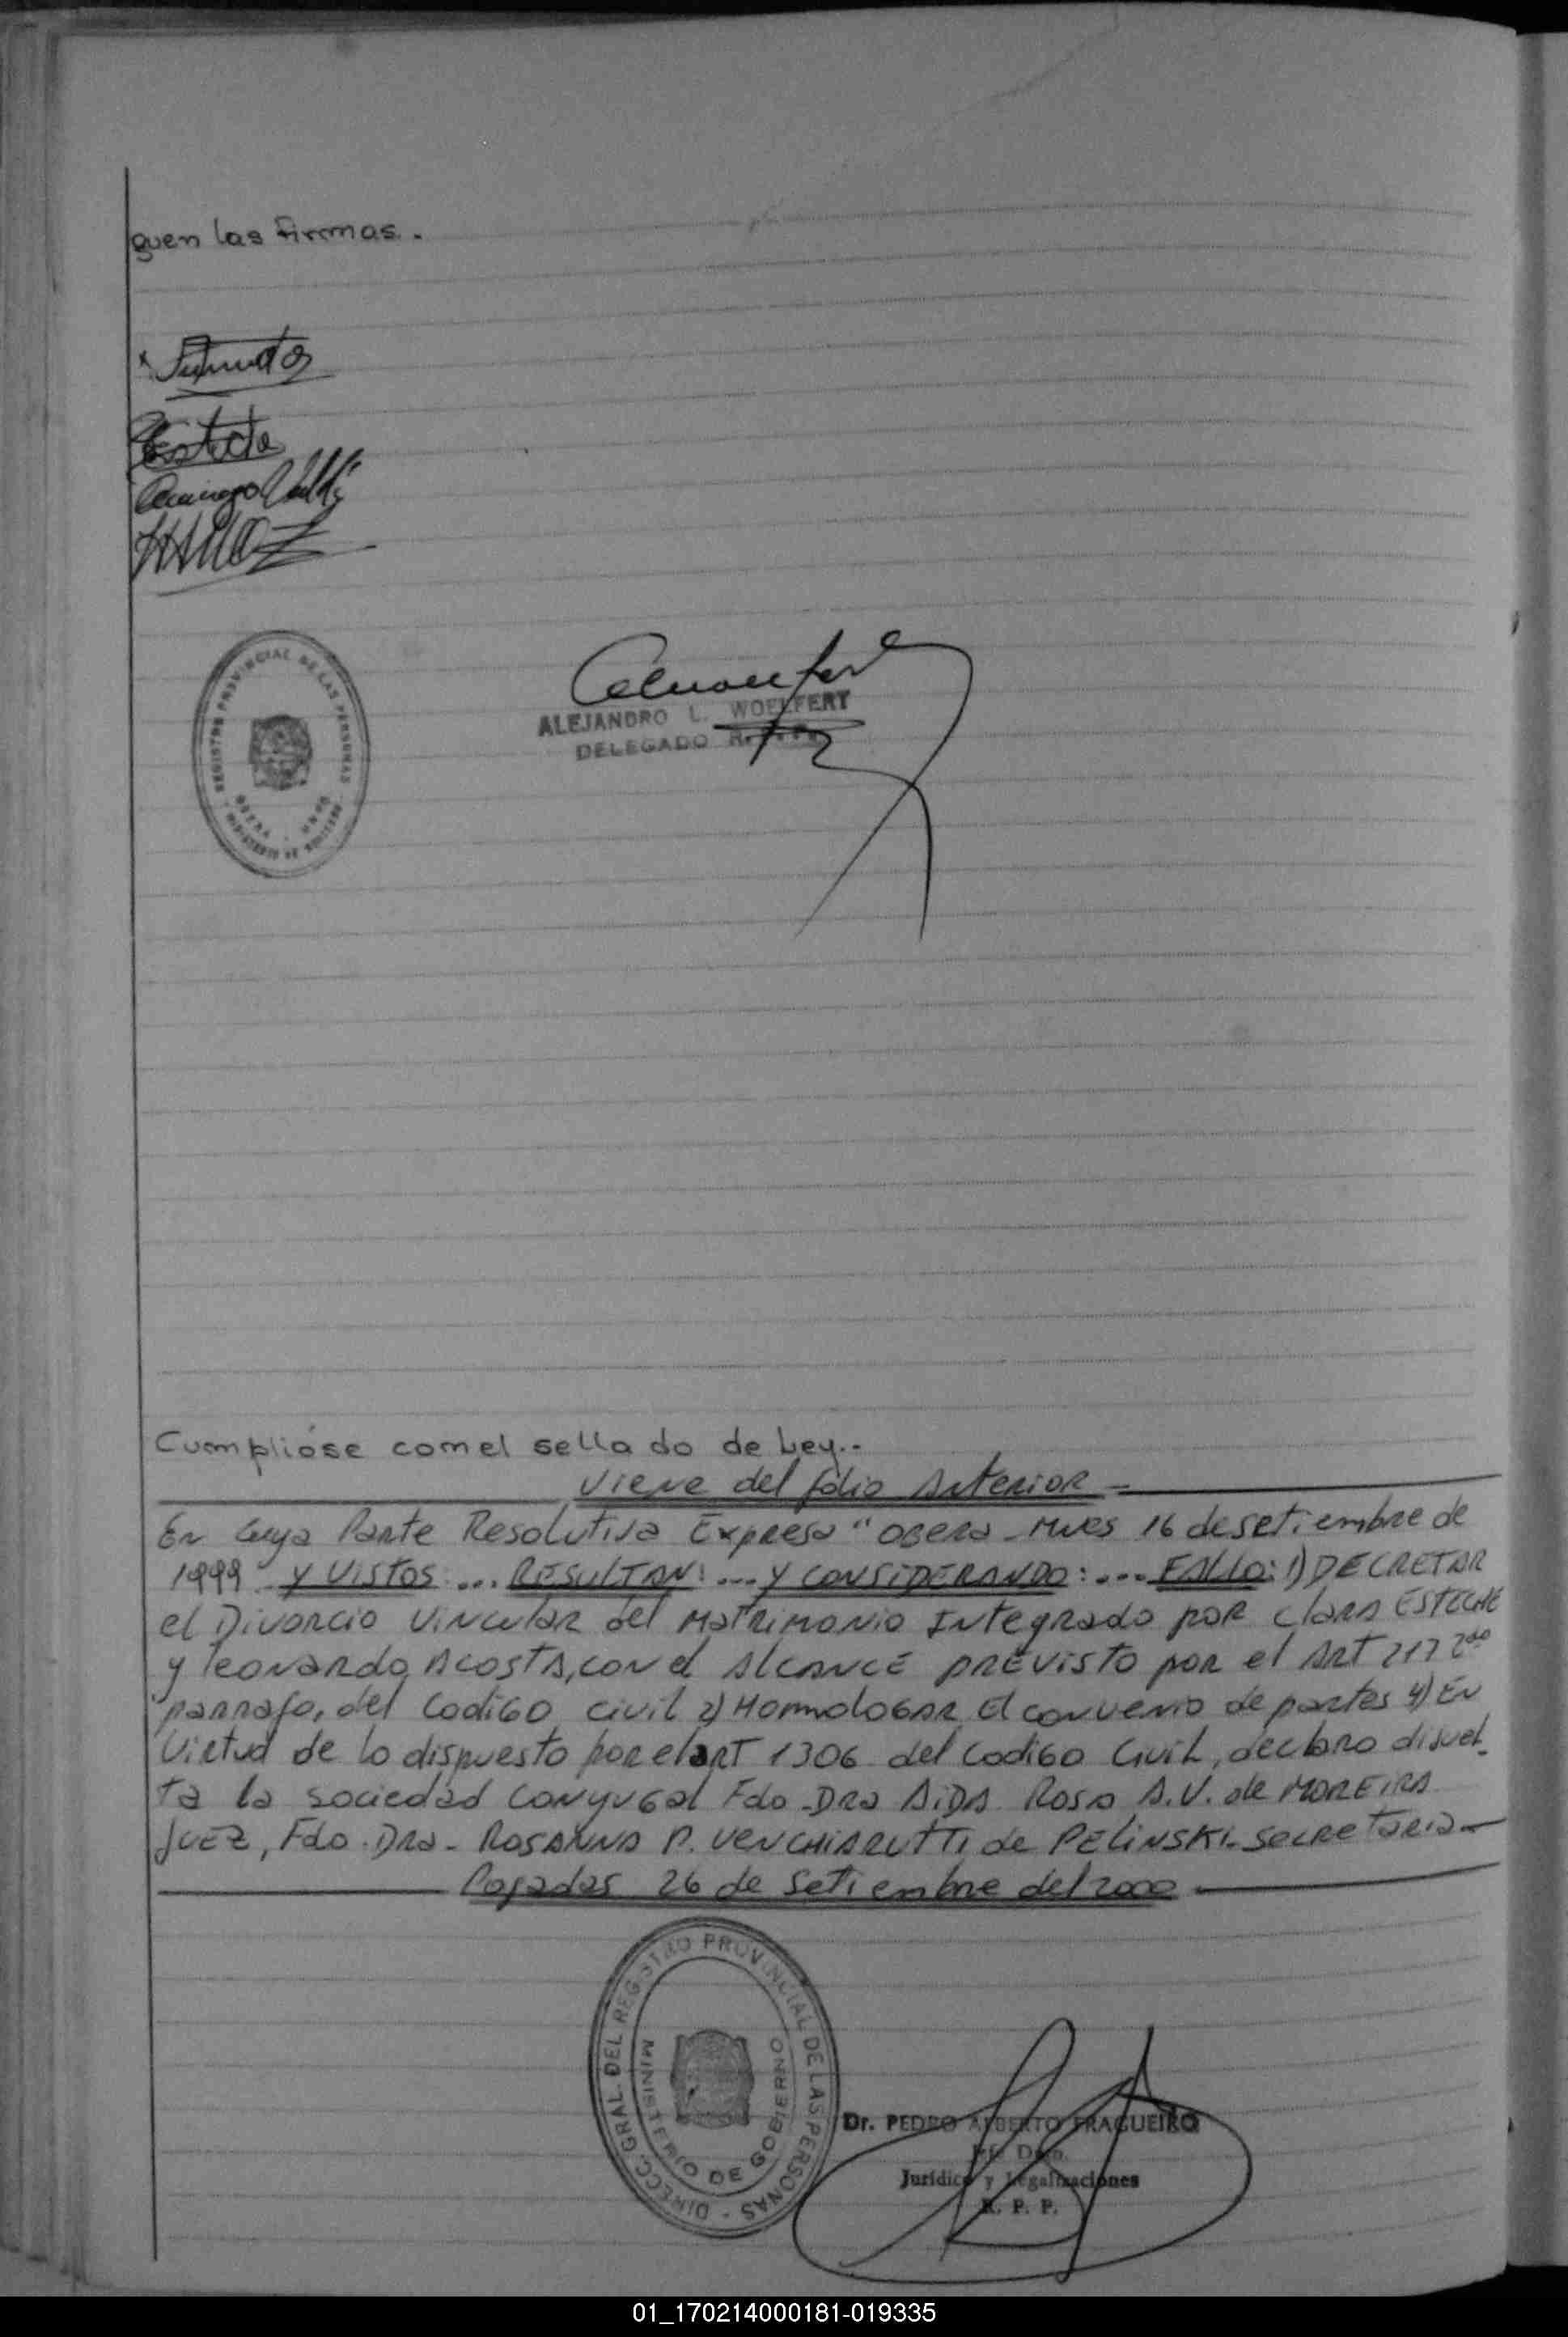 guen las firmas.
REGISTRO PROVINCIAL DE LAS PERSONAS
MINISTERIO DE GOBIERNO
ALEJANDRO L. WOELFERT
DELEGADO R.
Cumplióse con el sellado de Ley.-
Viene del folio Anterior -
En Cuya Parte Resolutiva Expresa "OBERA - Mnes 16 de setiembre de
1999 Y VISTOS: ... RESULTAN: ... Y CONSIDERANDO: ... FALLO: 1) DECRETAR
el Divorcio Vincular del Matrimonio Integrado por Clara ESTECHE
y Leonardo ACOSTA, con el Alcance previsto por el ART 217 2do
parrafo, del Codigo Civil 2) Homologar El convenio de partes 4) En
Virtud de lo dispuesto por el art 1306 del Codigo Civil, declaro disuel-
ta la sociedad Conyugal Fdo - Dra AiDA Rosa A.V. de MOREIRA
JUEZ, Fdo. Dra - ROSANNA P. VENCHIARUTTI de PELINSKI - Secretaria -
Posadas 26 de Setiembre del 2000
DIRECC. GRAL. DEL REGISTRO PROVINCIAL DE LAS PERSONAS -
MINISTERIO DE GOBIERNO
Dr. PEDRO ALBERTO FRAGUEIRO
Jurídico y Legalizaciones
R. P. P.
01_170214000181-019335